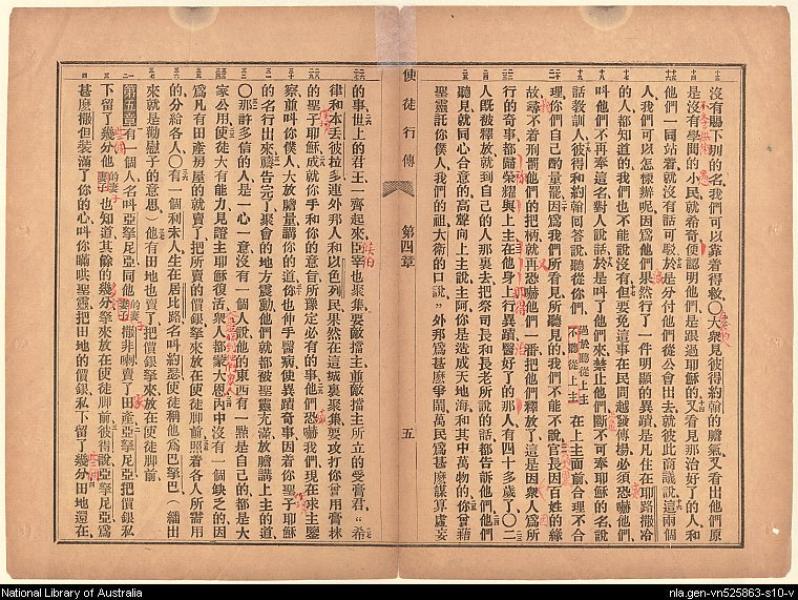 沒有賜下別的名、我們可以靠着得救、〇大衆見彼得約翰的膽氣、又看出他們原
是沒有學問的小民、就希奇、便認明他們是跟過耶穌的、又看見那治好了的人、和
他們一同站着、就沒有話可駁、於是分付他們從公會出去、就彼此商議說、這兩個
人、我們可以怎樣辦呢、因爲他們果然行了一件明顯的異蹟、是凡住在耶路撒冷
的人、都知道的、我們也不能說沒有、但要免這事在民間越發傳揚、必須恐嚇他們、
叫他們不再奉這名對人說話、於是叫了他們來、禁止他們、斷不可奉耶穌的名說
話敎訓人、彼得和約翰回答說、聽從你們、過於聽從上主不聽從上主在上主面前合理不合
理、你們自己酌量罷、因爲我們所看見所聽見的、我們不能不說、官長因百姓的緣
故、尋不着刑罰他們的把柄、就再恐嚇他們一番、把他們釋放了、這是因衆人爲所
行的奇事、都歸榮耀與上主、在他身上行異蹟醫好了的那人、有四十多歲了、〇二
人既被釋放、就到自己的人那裏去、把祭司長和長老所說的話、都告訴他們、他們
聽見、就同心合意的高聲向上主說、主阿、你是造成天地海、和其中萬物的、你曾藉
聖靈託你僕人我們的祖大衛的口說、外邦爲甚麼爭鬧、萬民爲甚麼謀算虛妄
使徒行傳
第四章
五
的事、世上的君王一齊起來、臣宰也聚集、要敵擋主、並敵擋主所立的受膏君、希
律和本丟彼拉多、連外邦人和以色列民、果然在這城裏聚集、要攻打你曾用膏抹
的聖子耶穌、成就你手和你的意旨所豫定必有的事、他們恐嚇我們、現在求主鑒
察、並叫你僕人、大放膽量講你的道、你也伸手醫病、使異蹟奇事、因着你聖子耶穌
的名行出來、禱告完了、聚會的地方震動、他們就都被聖靈充滿、放膽講上主的道、
〇那許多信的人、是一心一意、沒有一個人說他的東西有一點是自己的、都是大
家公用、使徒大有能力、見證主耶穌復活、衆人都蒙大恩、內中沒有一個缺乏的、因
爲凡有田產房屋的、就賣了、把所賣的價銀、拏來放在使徒脚前、照着各人所需用
的、分給各人、〇有一個利未人、生在居比路、名叫約瑟、使徒稱他爲巴拏巴、（繙出
來就是勸慰子的意思）他有田地、也賣了、把價銀拏來放在使徒脚前、
第五章有一個人、名叫亞拏尼亞、同他妻子撒非喇、賣了田產、亞拏尼亞把價銀私
下留了幾分、他妻子也知道、其餘的幾分、拏來放在使徒脚前、彼得說、亞拏尼亞、爲
甚麼撒但裝滿了你的心、叫你瞞哄聖靈、把田地的價銀、私下留了幾分、田地還在、
National Library of Australia
nla.gen-vn525863-s10-v